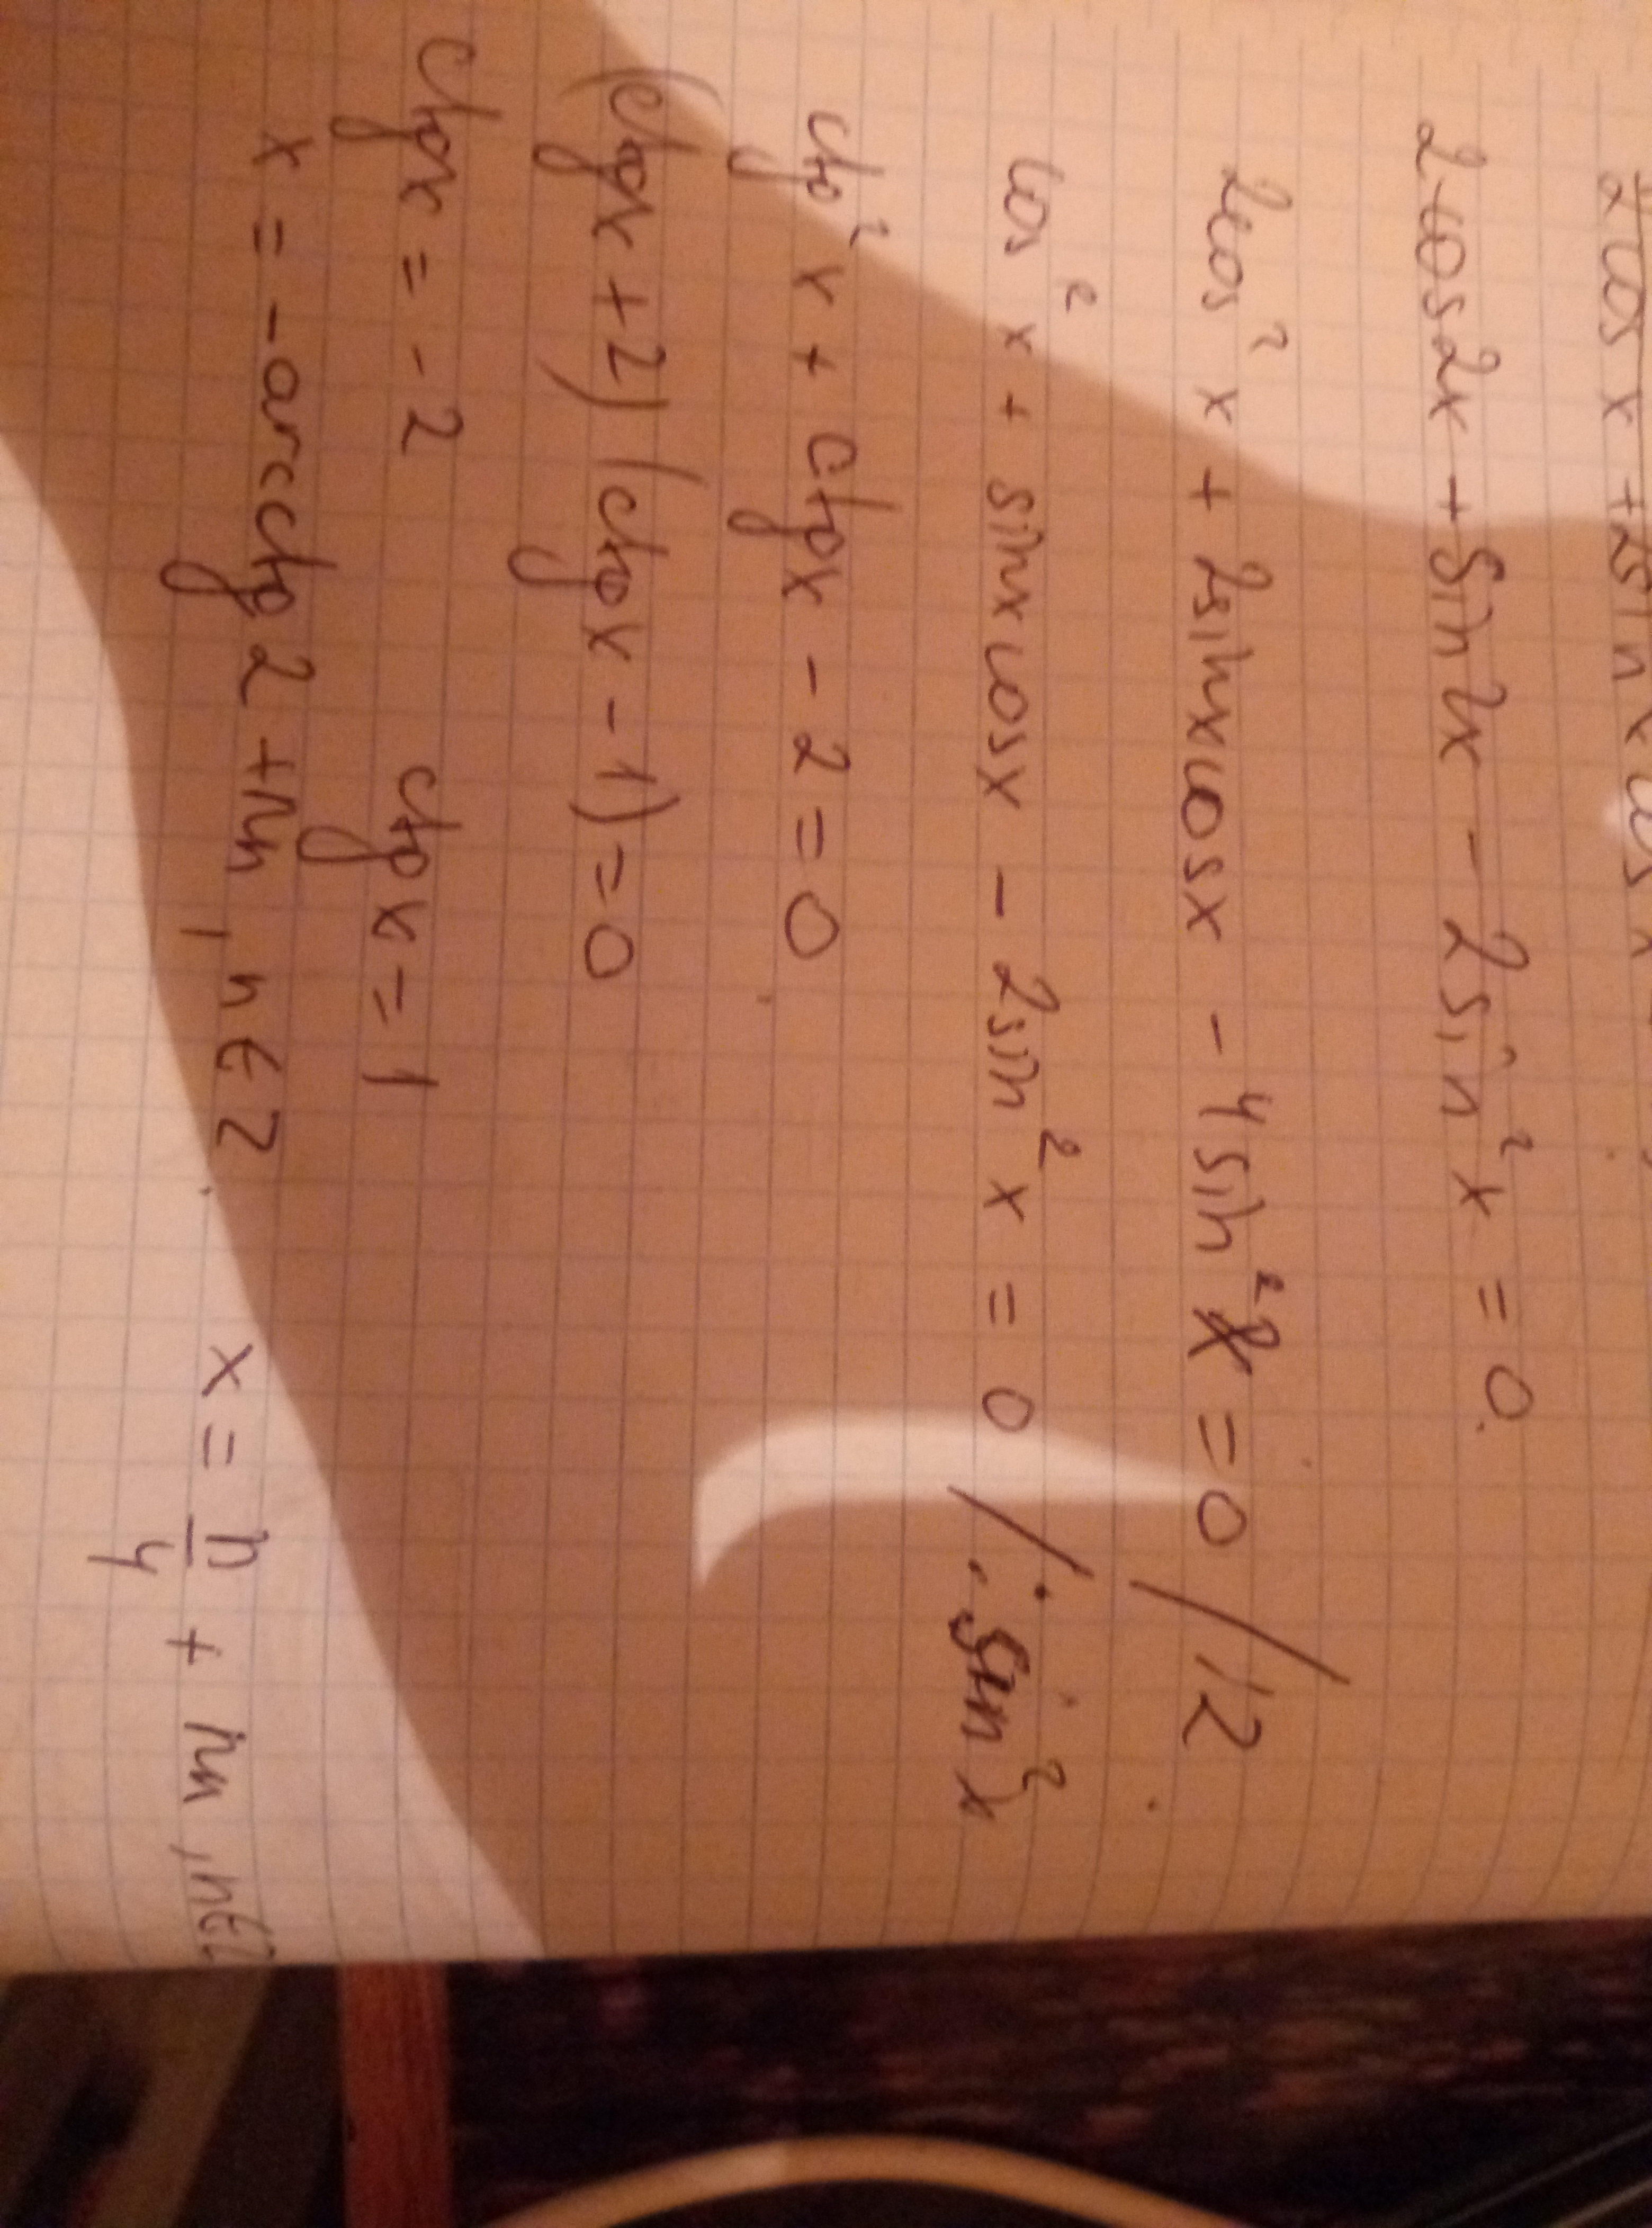 2cos x + 2sin x cos x
2cos2x + sin2x - 2sin²x = 0.
2cos²x + 2sinxcosx - 4sin²x = 0 /:2
cos²x + sinxcosx - 2sin²x = 0 /: sin²x
ctg²x + ctgx - 2 = 0
(ctgx + 2) (ctgx - 1) = 0
ctgx = -2 ctgx = 1
x = -arcctg2 + πn, n∈Z x = π/4 + πn, n∈Z